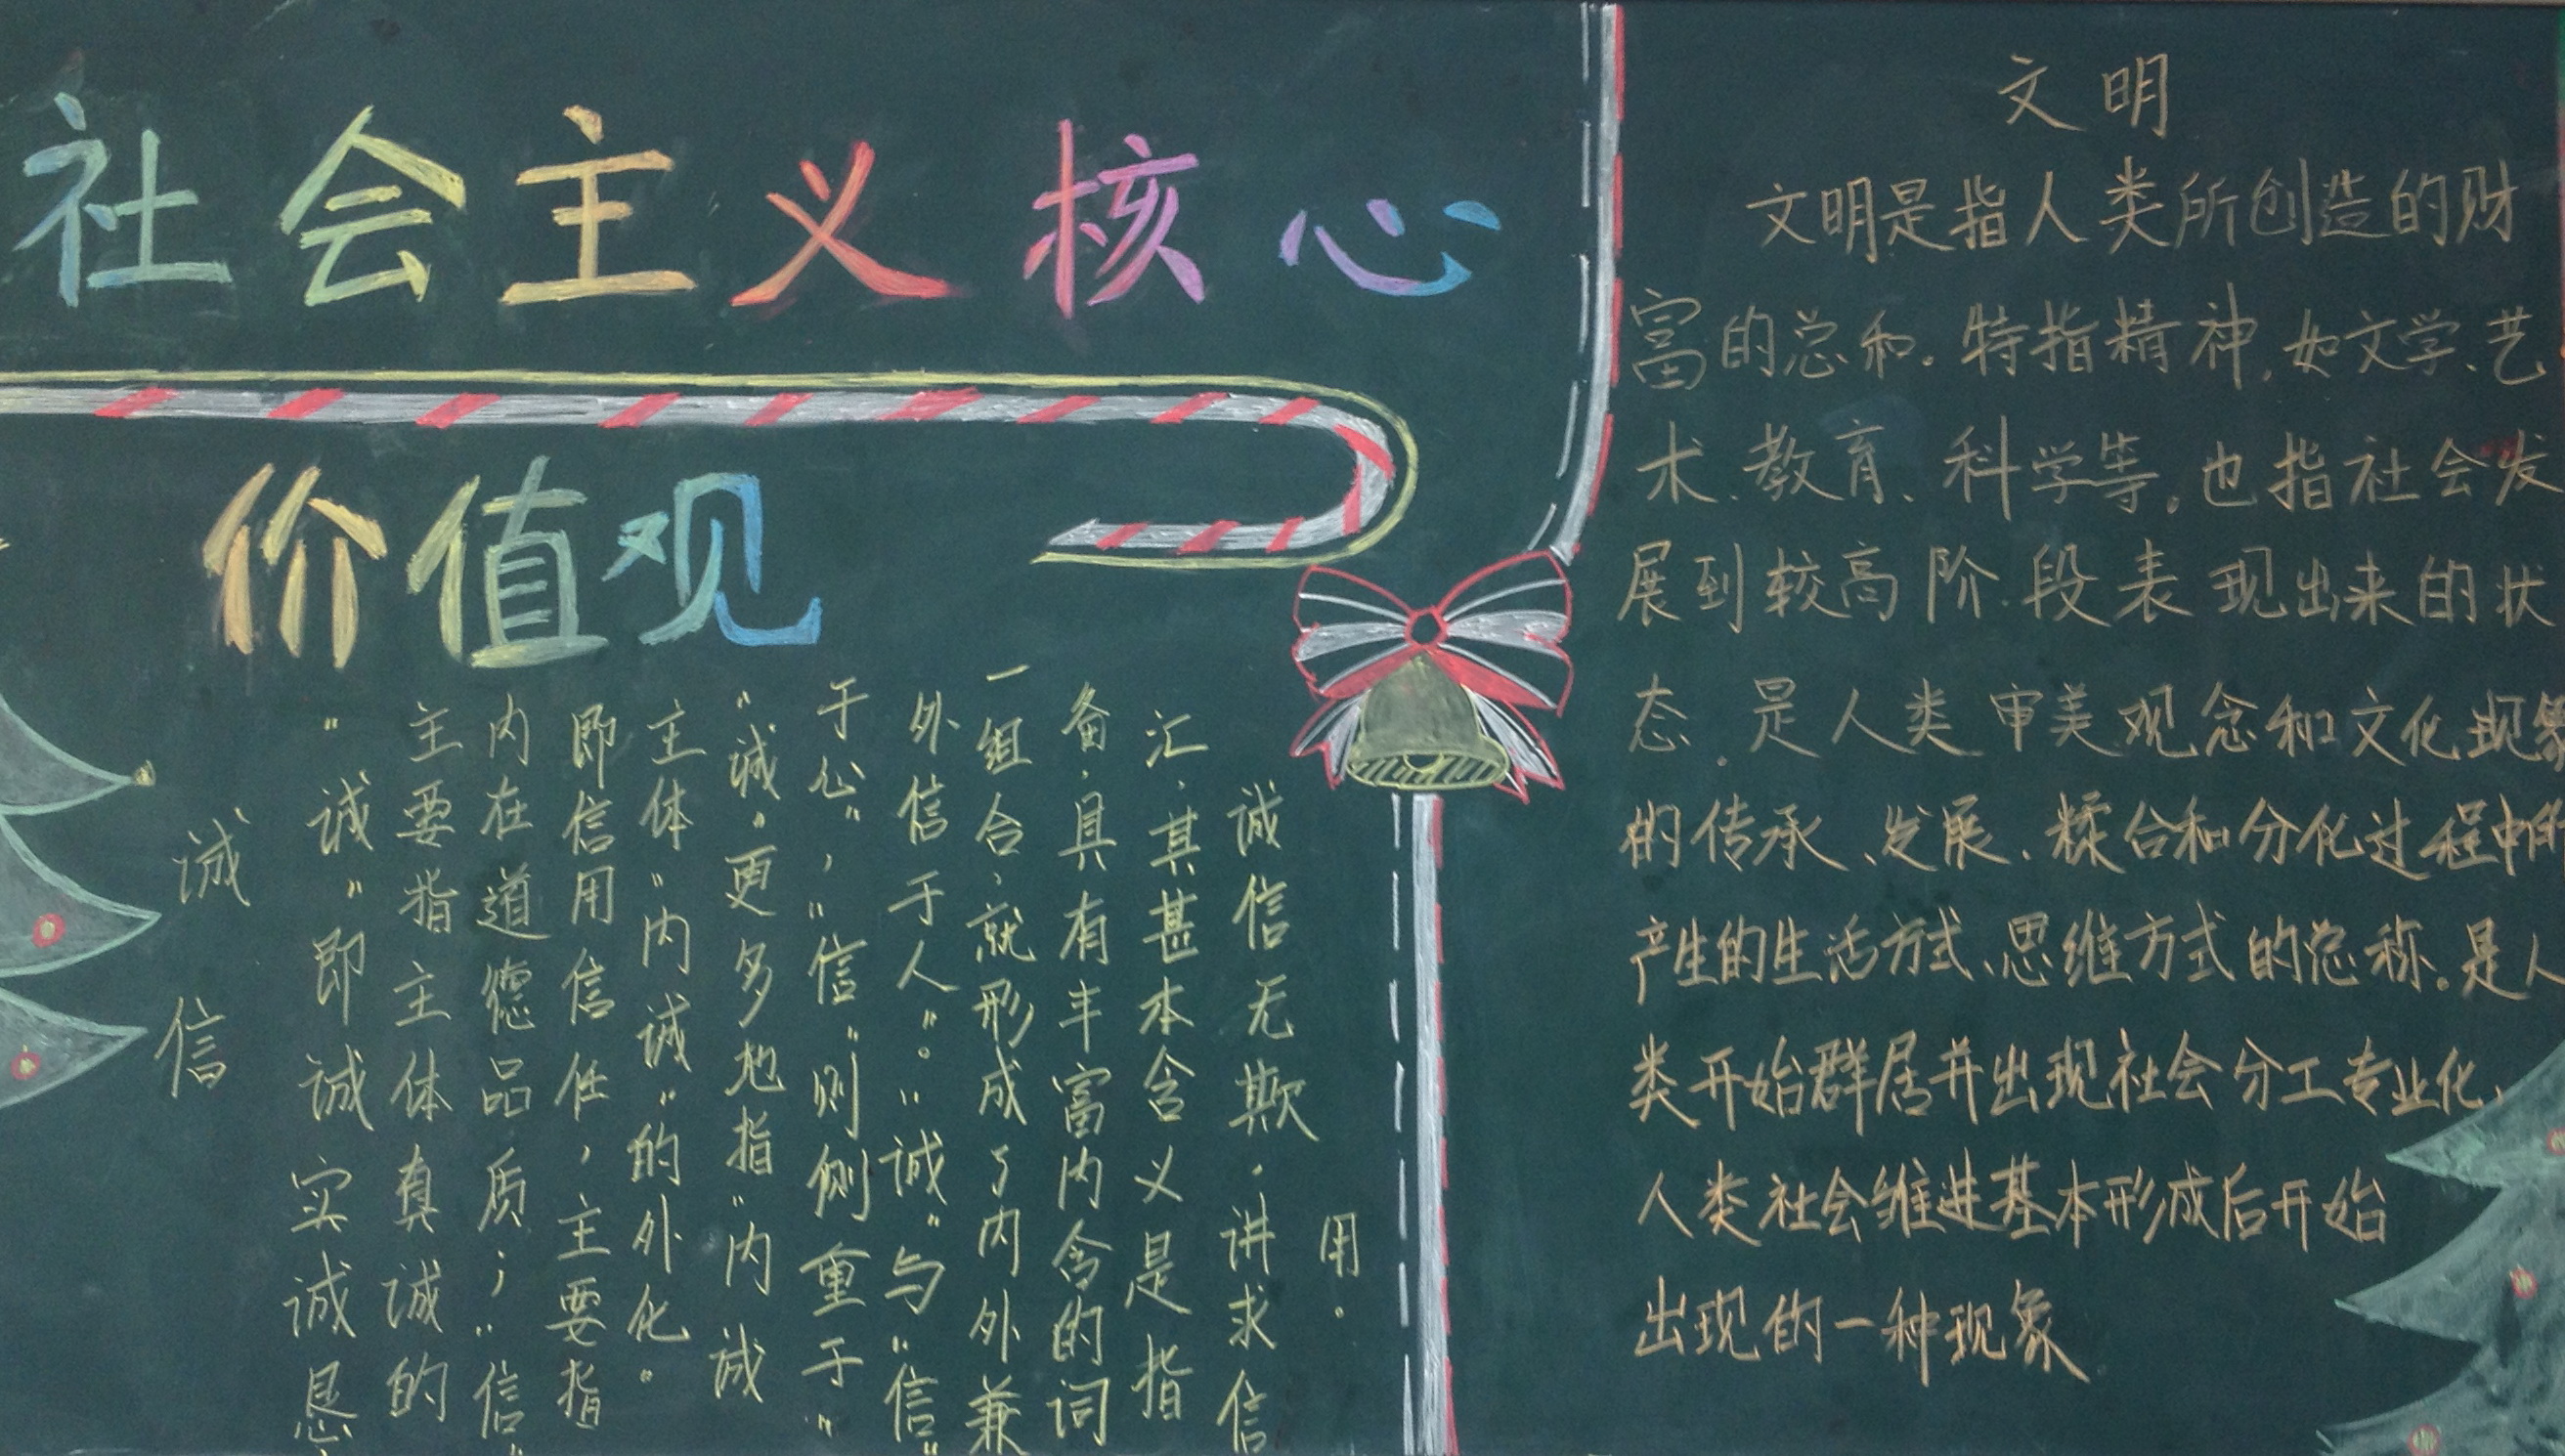 社会主义核心
价值观
诚信
"诚"即诚实诚恳,
主要指主体真诚的
内在道德品质;"信"
即信用信任,主要指
主体"内诚"的外化"。
"诚"更多地指"内诚
于心","信"则侧重于"
外信于人"。"诚"与"信"
一组合,就形成了内外兼
备,具有丰富内含的词
汇,其甚本含义是指
诚信无欺,讲求信
用。
文明
文明是指人类所创造的财
富的总和.特指精神,如文学、艺
术、教育、科学等。也指社会发
展到较高阶段表现出来的状
态.是人类审美观念和文化现象
的传承、发展、糅合和分化过程中所
产生的生活方式、思维方式的总称。是人
类开始群居并出现社会分工专业化,
人类社会雏进基本形成后开始
出现的一种现象